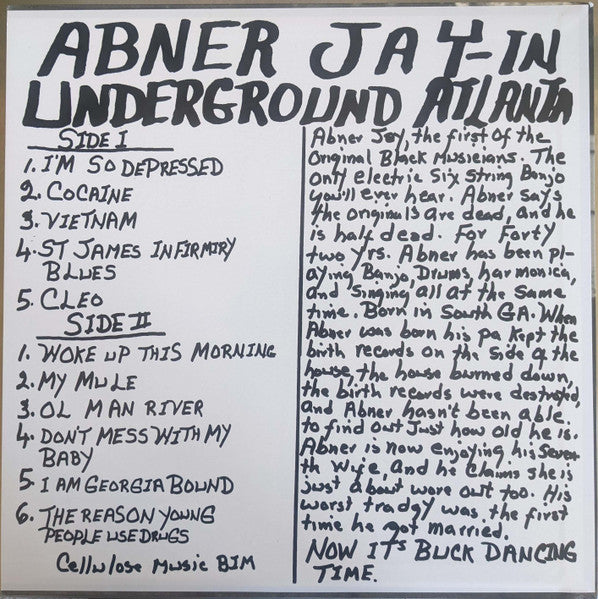 ABNER JAY-IN
UNDERGROUND ATLANTA
SIDE I
1. I'M SO DEPRESSED
2. COCAINE
3. VIETNAM
4. ST JAMES INFIRMIRY
BLUES
5. CLEO
SIDE II
1. WOKE UP THIS MORNING
2. MY MULE
3. OL MAN RIVER
4. DON'T MESS WITH MY
BABY
5. I AM GEORGIA BOUND
6. THE REASON YOUNG
PEOPLE USE DRUGS
Cellulose Music BIM
Abner Jay, the first of the
Original Black Musicians. The
only electric Six String Banjo
you'll ever hear. Abner says
the originals are dead, and he
is half dead. For Forty
two yrs. Abner has been pl-
aying Banjo, Drums, harmonica,
and Singing all at the Same
time. Born in South GA. When
Abner was born his pa Kept the
birth records on the Side of the
house, the house burned down,
the birth records were destroyed,
and Abner hasn't been able
to find out Just how old he is.
Abner is now enjoying his Seven-
th Wife, and he Claims she is
just about wore out too. His
worst tradgy was the first
time he got married.
NOW IT'S BUCK DANCING
TIME.